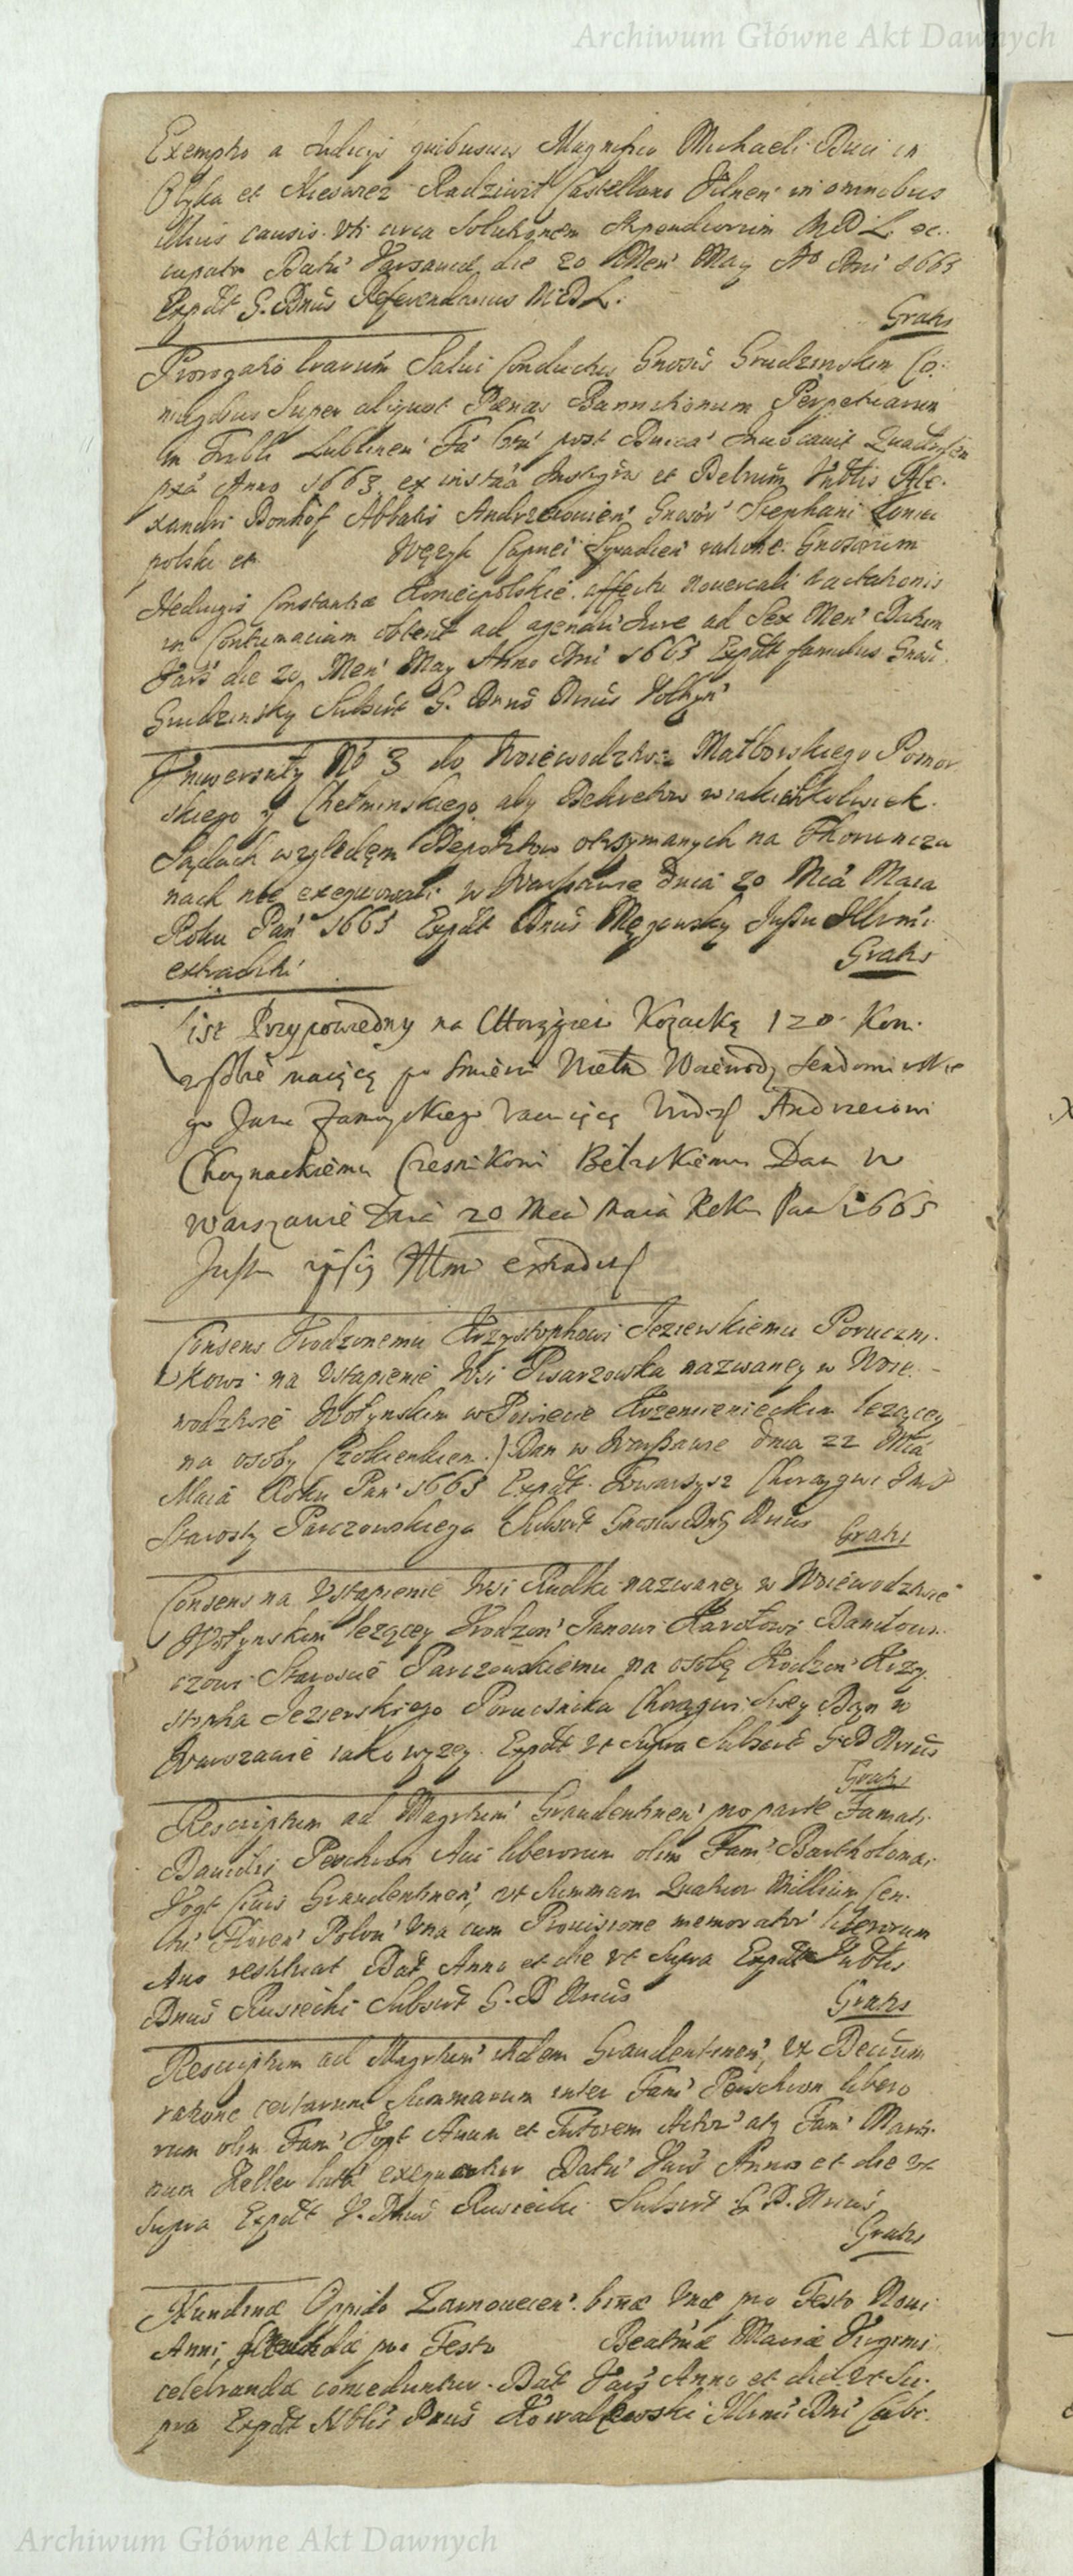 Archiwum Główne Akt Dawnych
Exemptio a Judicys quibusuis Magnifico Michaeli Duci in
Olyka et Nieswiez Radziwił Castellano Vilnen' in omnibus
illius causis. Vti circa Solutionem Stipendiorum M.D.L. oc:
cupato Datū Varsauiæ die 20 Men' May Ao Dni 1663
Expdt G. Dnus Referendarius M.D.L.
Gratis
Prorogatio Lrarum Salui Conductus Gnosis Grudzinskim Co:
niugibus Super aliquot Pænas Bannitionum Perpetuarum
in Trbli Lublinen' Fa post Dnica' Inuocauit
pxa Anno 1663 ex instā Instigris et Delnum Vrblis Ale:
xandri Donhof Abbatis Andrzeiouien' Gnosor' Stephani Koniec
polski et Wężyk Capnei Syradien' ratione Gnosarum
Hedwigis Constantiæ Koniecpolskie affectu nouercali tractationis
in Contumaciam obtent ad agendū Jure ad Sex Men' Datum
Vars die 20 Men' May Anno Dni 1663 Expdt famulus Gnosi
Grudzinsky Subscrit G. Dnus Volhyn'
Vniwersały No 3 do Woiewodztwa Malborskiego Pomor
skiego y Chełminskiego aby Dekretow w iakichkolwiek
Sądach względem Depozitow otrzymanych na Thoruncza
nach nie exequowali w Warszawie Dnia 20 Mca Maia
Roku Pan' 1663 Expdt Dnus Męzynsky Jussu Illrmi
extraditi
Gratis
List Przypowiedny na Chorągiew Kozacką 120 Kon.
w sobie maiącą po śmierci Woiewody Sendomirskie
go Jana Zamoyskiego vacuiącą Vrodz Andrzeiowi
Choynackiemu Czesnikowi Bełzkiemu Dan w
Warszawie Dnia 20 Mca Maia Roku Pan 1663
Jussu ipsig Illmi extradit
Consens Vrodzonemu Krzysztophowi Jezierskiemu Poruczni:
kowi na Vstąpienie Wsi Pisarzowka nazwaney w Woie:
wodztwie Wołynskim w Powiecie Krzemienieckim leżącey
na osoby Dan w Warszawie dnia 22 Mca
Maia Roku Pan' 1663 Expdt. Towarzysz Chorągwi
Starosty Parczowskiego Subscrit Gnosus Dns
Gratis
Consens na Vstąpienie Wsi Rudki nazwaney w Woiewodztwie
Wołynskim leżącey Vrodzon' Janowi Karołowi Daniłowi
czowi Staroscie Parczowskiemu na osobę Vrodzon' Krzy
stopha Jezierskiego Porucznika Chorągwi Swey Dan w
Warszawie iako wyzey. Expdt vt Supra Subscrit G. D.
Gratis
Rescriptum ad Magrtum' Graudentinen', pro parte Famati
Dauidis Peschwon Aui liberorum olim Fam' Bartholomæi
Vogt Ciuis Graudentinen', vt Summam Quatuor Millium Cen:
tū Floren' Polon' vna cum Prouisione memorator' liberorum
Auo restituat Dat Anno et die vt Supra Expdt
Dnus Rusiecki Subscrit G. D.
Gratis
Rescriptum ad Magrtum' itidem Graudentinen', vt Decūm
ratione certarum Summarum inter Fam' Peschwon libero
rum olim Fam' Vogt Auum et Tutorem Actor' atq Fam' Marti:
num Keller latū exequantur Datū Vars Anno et die vt
Supra Expdt Dnus Rusiecki Subscrit G. D.
Gratis
Nundinæ Oppido Zarnouecen' binæ vnæ pro Festo Noui
Anni, pro Festo Beatissimæ Mariæ Virginis
celebrandæ conceduntur. Dat Vars Anno et die vt Su:
pra Expdt Nblis Dnus Kowalkowski Illrmi Dni Cubc.
Archiwum Główne Akt Dawnych